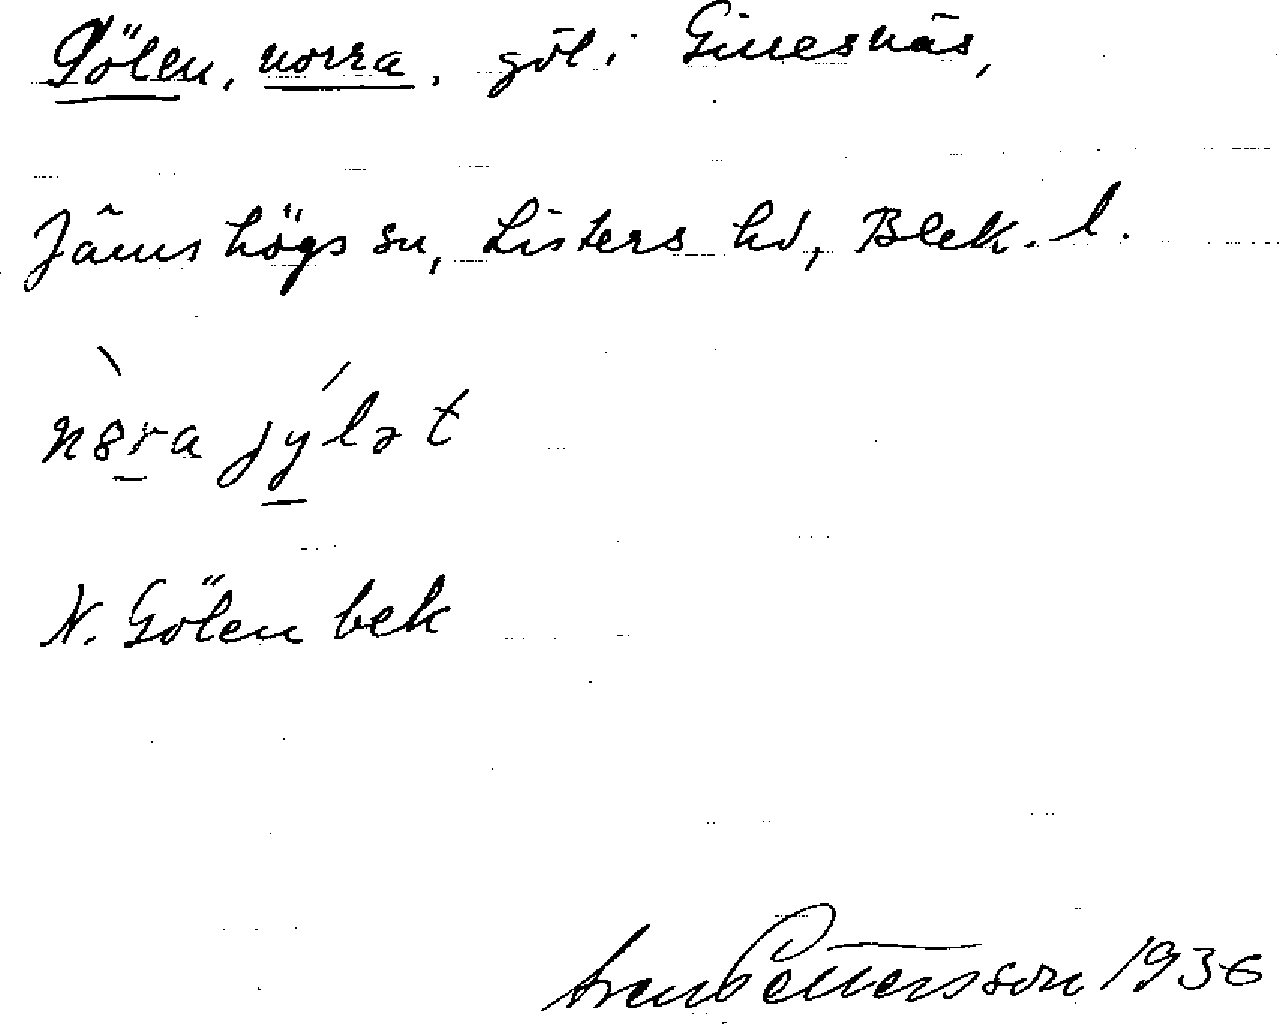 Gölen, norra. göl i Gillesnäs,
Jämshögs sn, Listers hd, Blek. l.
nora jylət
N. Gölen bek
Sven Pettersson 1936